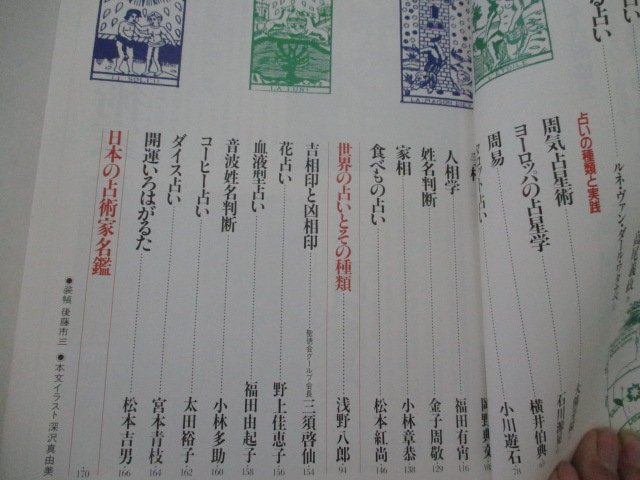 占い
る占い
ルネ・ヴァン・ダール
占いの種類と実践
周気占星術 横井伯典
ヨーロッパの占星学
周易 小川遊石 78
人相学 福田有宵 116
姓名判断 金子周敬 129
家相 小林章恭 138
食べもの占い 松本紅尚 146
世界の占いとその種類 浅野八郎 94
吉相印と凶相印 聖徳会グループ会長 三須啓仙 154
花占い 野上佳恵子 156
血液型占い 福田由起子 158
音波姓名判断 小林多助 160
コーヒー占い 太田裕子 162
ダイス占い 宮本青枝 164
開運いろはがるた 松本吉男 166
日本の占術家名鑑 170
●装幀 後藤市三 ●本文イラスト 深沢真由美
LE SOLEIL
LA LUNE
LA MAISON DIEU